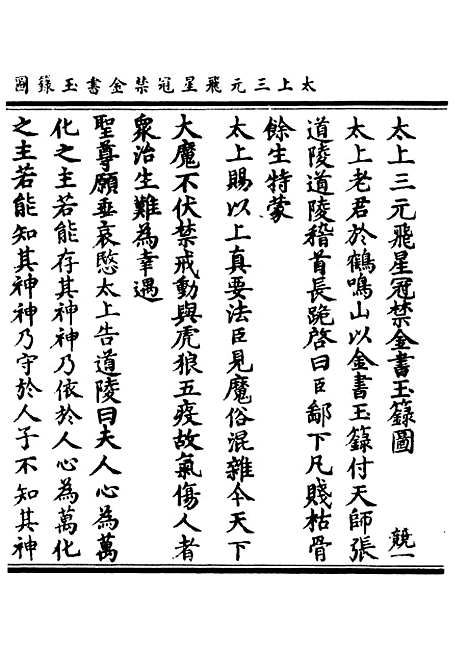 太上三元飛星冠禁金書玉籙圖
太上三元飛星冠禁金書玉籙圖　競一
太上老君於鶴鳴山以金書玉籙付天師張
道陵道陵稽首長跪啓曰臣鄙下凡賤枯骨
餘生特蒙
太上賜以上真要法臣見魔俗混雜今天下
大魔不伏禁戒動與虎狼五疫故氣傷人者
衆治生難為幸遇
聖尊願垂哀愍太上告道陵曰夫人心為萬
化之主若能存其神神乃依於人心為萬化
之主若能知其神神乃守於人子不知其神